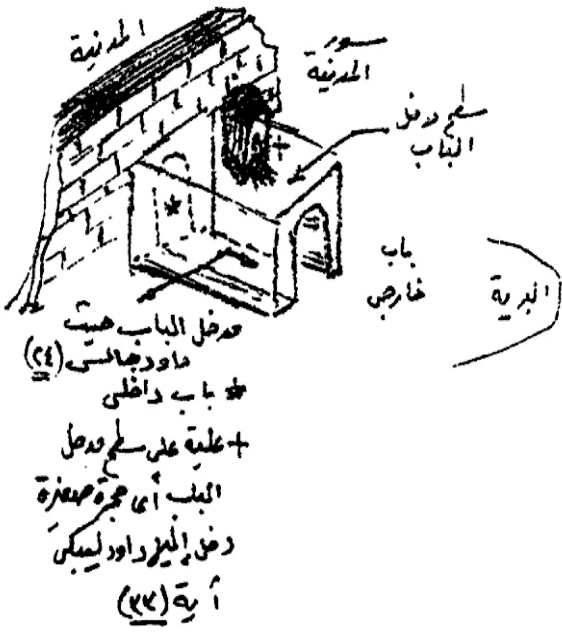 المدينة
سور
المدينة
سطح مدخل
الباب
باب
خارجى
البرية
مدخل الباب حيث
داود جالس (٢٤)
* باب داخلى
+ علية على سطح مدخل
الباب أى حجرة صغيرة
دخل إليها داود ليبكى
أية (٣٣)